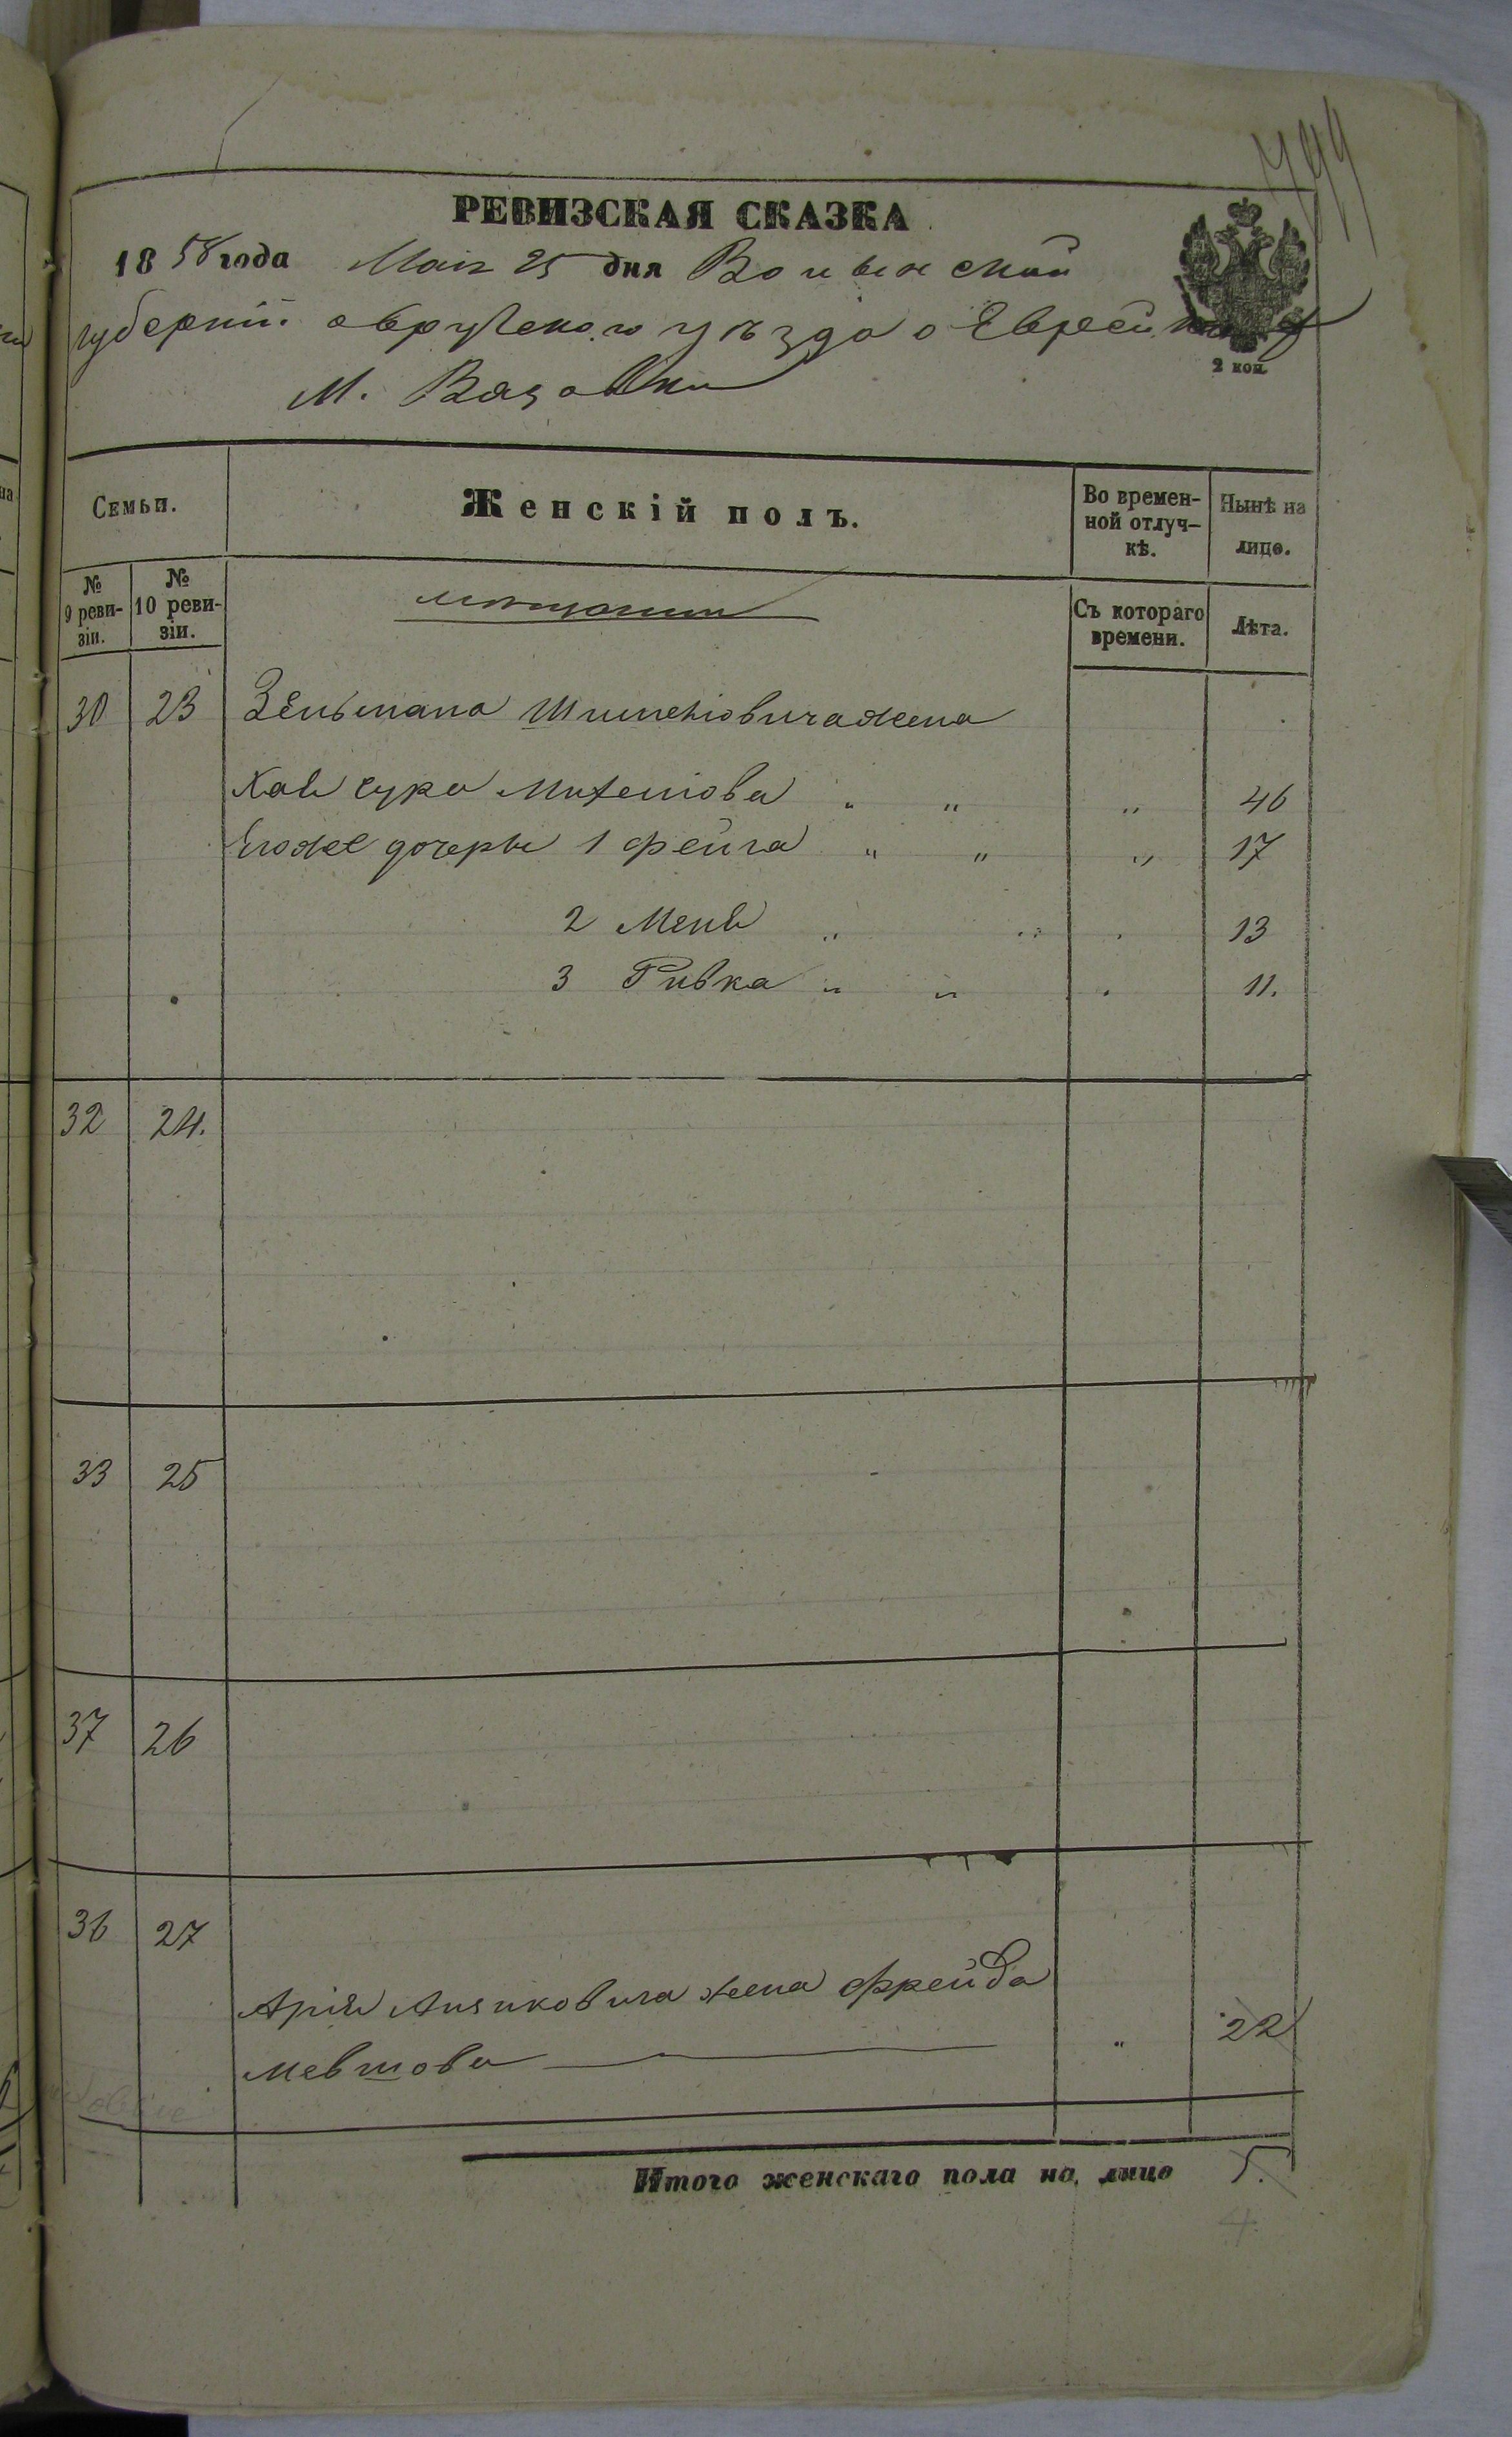 799
РЕВИЗСКАЯ СКАЗКА
1858 года Маія 25 дня Волынской
губерніи Овручского уѣзда о Евреи
М. Вазовки
2 коп.
Семьи.
Женскій полъ.
Во времен-
ной отлуч-
кѣ.
Нынѣ на
лицо.
№
9 реви-
зіи.
№
10 реви-
зіи.
мѣщании
Съ котораго
времени.
Лѣта.
30 23 Зельмана Шмулёвича жена
Хая Сура Михелова " " " 46
Егоже дочерьи 1 Фейга " " " 17
2 Меня " " " 13
3 Ривка " " " 11.
32 24.
33 25
37 26
36 27
Арія Ициковича жена Фрейда
Мевшова " 22
Итого женскаго пола на лицо 5.
4